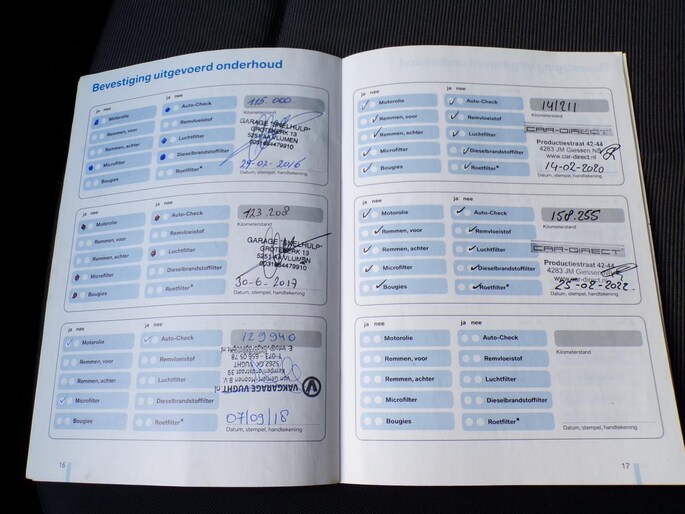 Bevestiging uitgevoerd onderhoud
ja nee
ja nee
Motorolie
Auto-Check
115.000
Remmen, voor
Remvloeistof
Kilometerstand
Remmen, achter
Luchtfilter
GARAGE "SNELHULP"
GROTEKERK 13
5251 AA VLIJMEN
0031644479910
Microfilter
Dieselbrandstoffilter
29-02-2016
Bougies
Roetfilter*
Datum, stempel, handtekening
ja nee
ja nee
Motorolie
Auto-Check
123.208
Remmen, voor
Remvloeistof
Kilometerstand
Remmen, achter
Luchtfilter
GARAGE "SNELHULP"
GROTEKERK 13
5251 AA VLIJMEN
0031644479910
Microfilter
Dieselbrandstoffilter
30-6-2017
Bougies
Roetfilter*
Datum, stempel, handtekening
ja nee
ja nee
Motorolie
Auto-Check
129940
Remmen, voor
Remvloeistof
Remmen, achter
Luchtfilter
VAKGARAGE VUGHT
T 073 - 656 05 78
Microfilter
Dieselbrandstoffilter
07/09/18
Bougies
Roetfilter*
Datum, stempel, handtekening
16
ja nee
ja nee
Motorolie
Auto-Check
Remmen, voor
Remvloeistof
Kilometerstand
Remmen, achter
Luchtfilter
CAR-DIRECT
Productiestraat 42-44
4283 JM Giessen NB
www.car-direct.nl
Microfilter
Dieselbrandstoffilter
14-02-2020
Bougies
Roetfilter*
Datum, stempel, handtekening
ja nee
ja nee
Motorolie
Auto-Check
158.255
Remmen, voor
Remvloeistof
Kilometerstand
Remmen, achter
Luchtfilter
CAR-DIRECT
Productiestraat 42-44
4283 JM Giessen
Microfilter
Dieselbrandstoffilter
25-02-2022
Bougies
Roetfilter*
Datum, stempel, handtekening
ja nee
ja nee
Motorolie
Auto-Check
Remmen, voor
Remvloeistof
Kilometerstand
Remmen, achter
Luchtfilter
Microfilter
Dieselbrandstoffilter
Bougies
Roetfilter*
Datum, stempel, handtekening
17